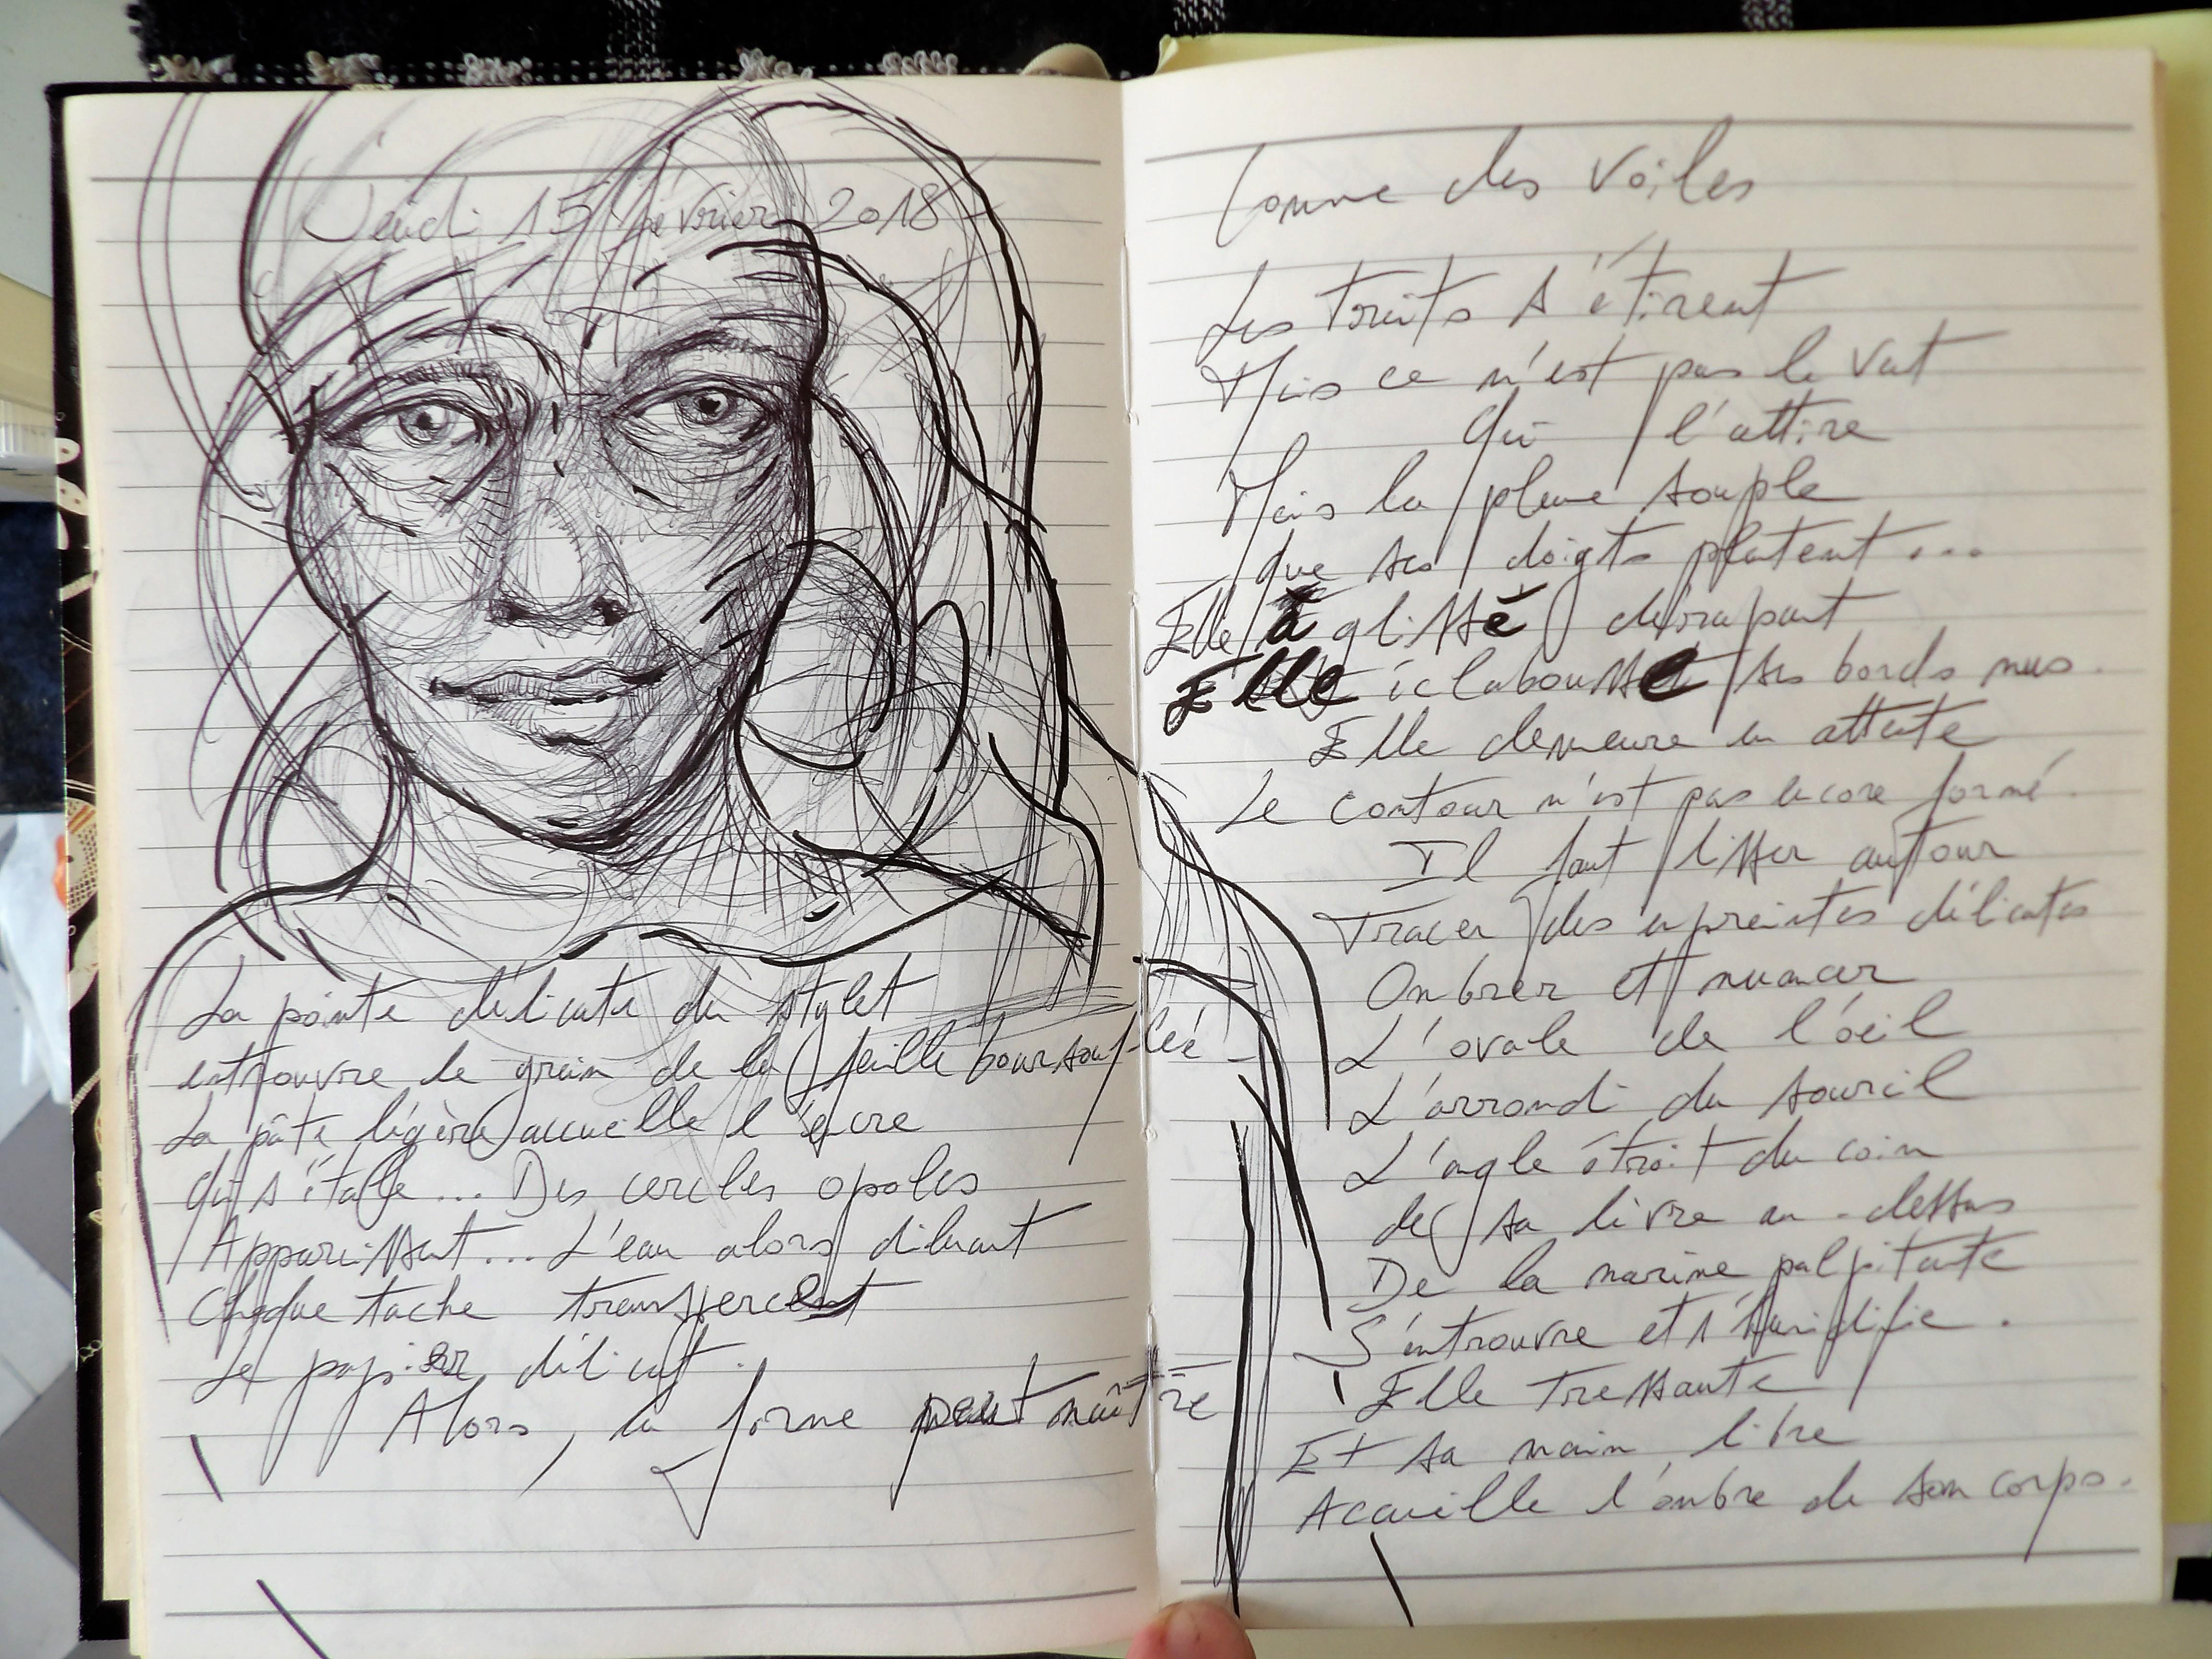 Jeudi 15 février 2018
La pointe délicate du stylet
entrouvre le grain de la feuille boursouflée
La pâte légère accueille l'encre
Qui s'étale... Des cercles opales
Apparaissent... L'eau alors diluant
Chaque tache transpercent
Le papier délicat.
Alors, la forme peut naître
Comme des Voiles
Les Traits s'étirent
Mais ce n'est pas le Vent
Qui l'attire
Mais la plume souple
Que ses doigts plantent...
Elle a glissé dérapant
Elle éclabousse ses bords nus.
Elle demeure en attente
Le contour n'est pas encore formé.
Il faut lisser autour
Tracer des empreintes délicates
Ombrer et nuancer
L'ovale de l'oeil
L'arrondi du sourcil
L'angle étroit du coin
de sa lèvre au-dessus
De la narine palpitante
S'entrouvre et s'humidifie.
Elle Tressaute
Et sa main libre
Accueille l'ombre de son corps.